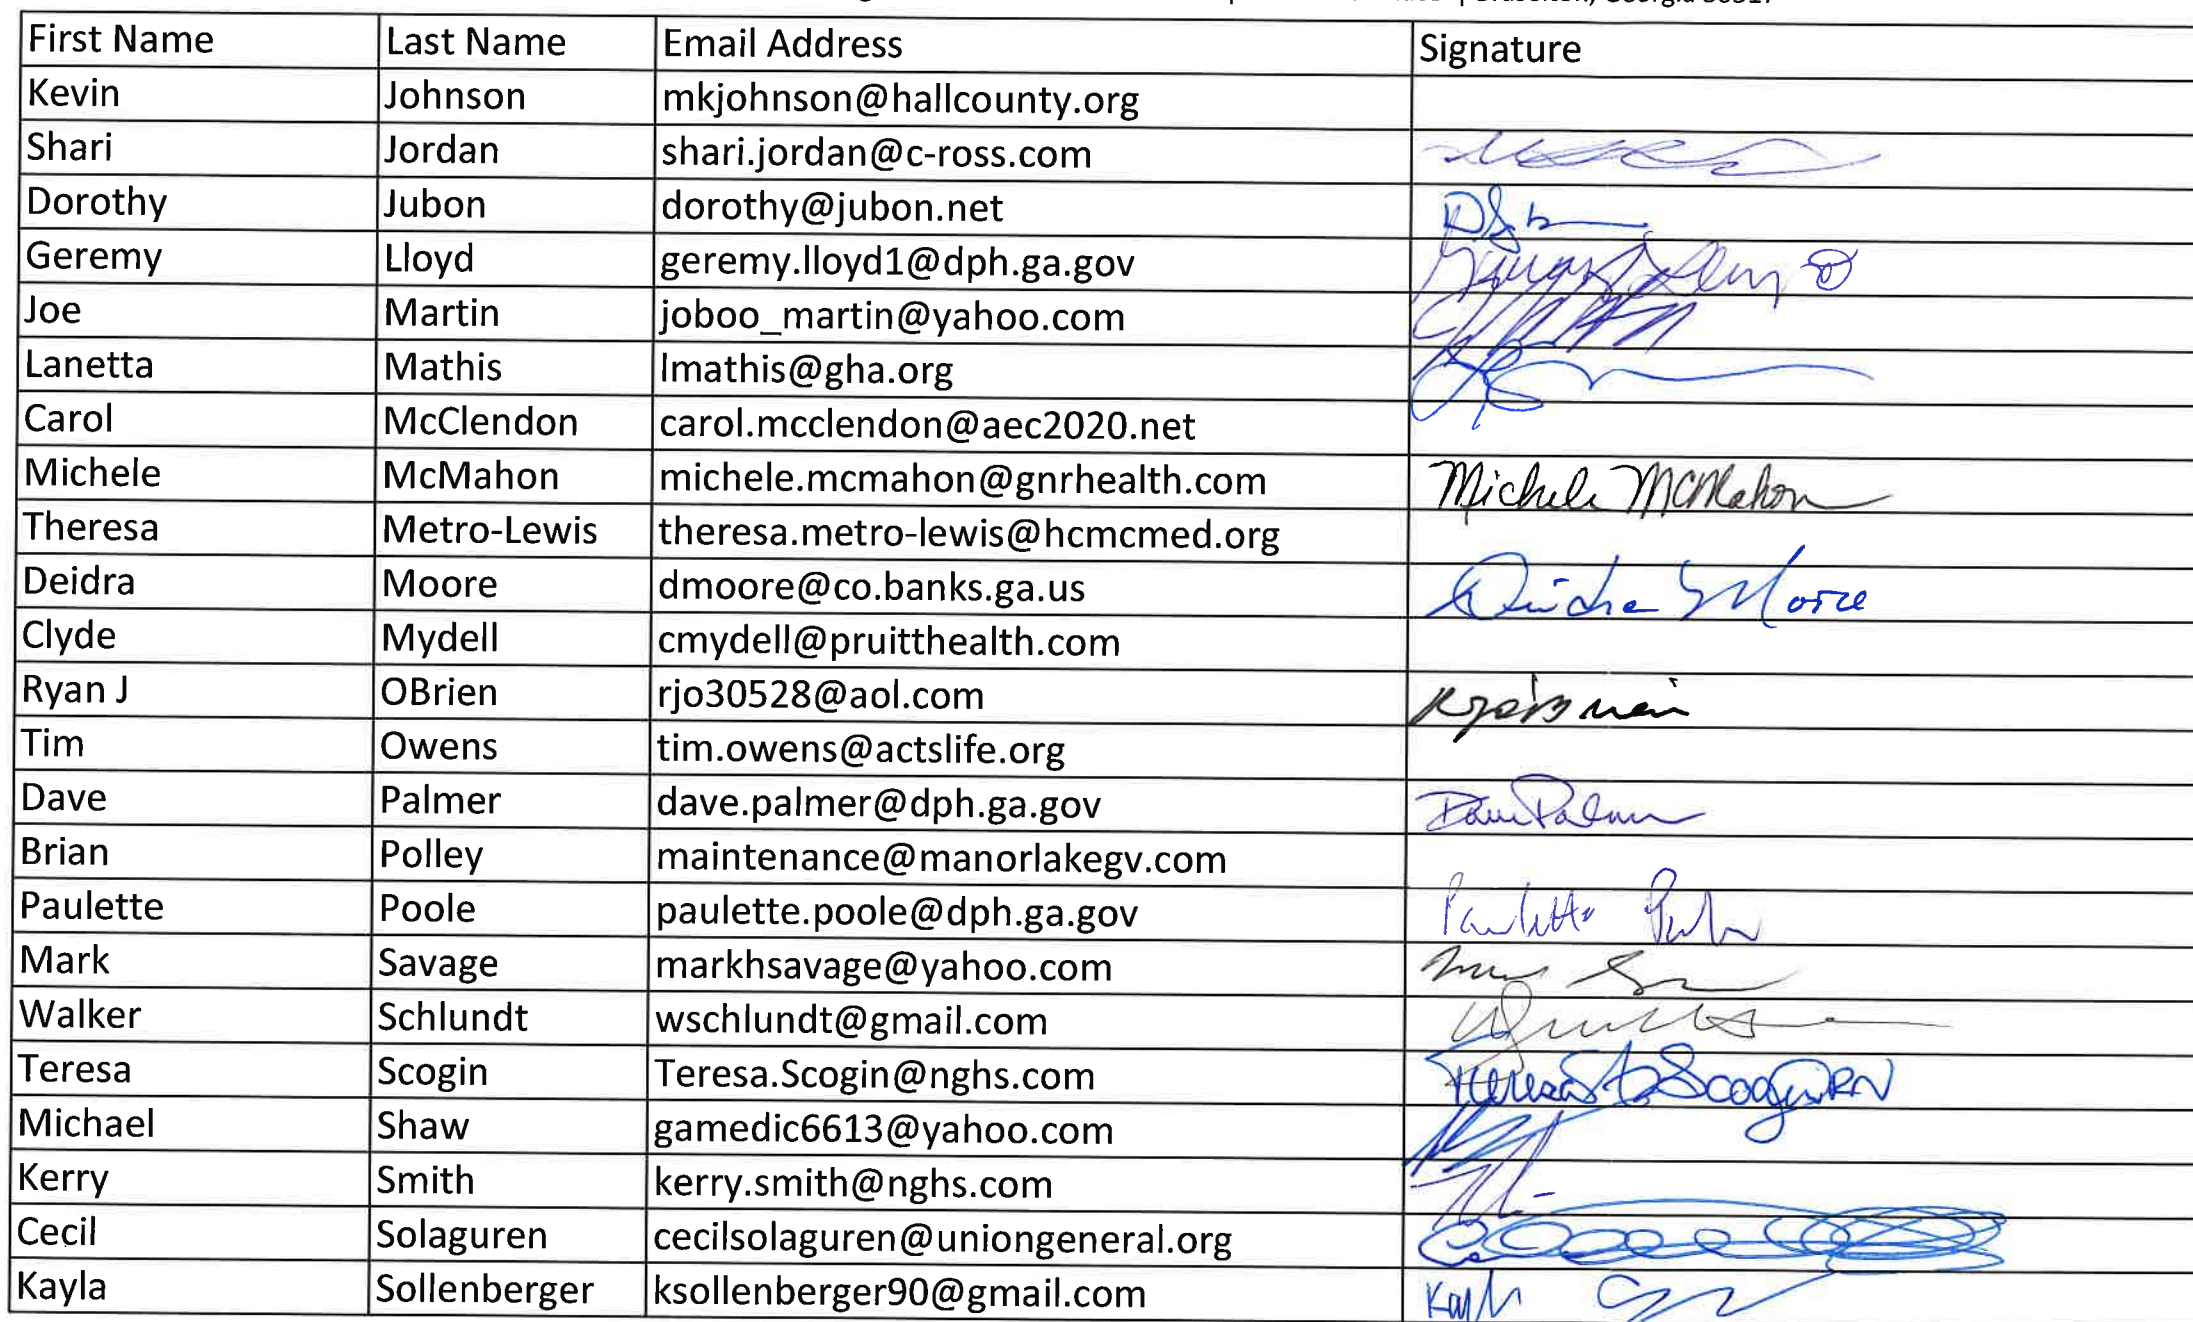 Braselton, Georgia 30517
First Name Last Name Email Address Signature
Kevin Johnson mkjohnson@hallcounty.org
Shari Jordan shari.jordan@c-ross.com
Dorothy Jubon dorothy@jubon.net
Geremy Lloyd geremy.lloyd1@dph.ga.gov
Joe Martin joboo_martin@yahoo.com
Lanetta Mathis lmathis@gha.org
Carol McClendon carol.mcclendon@aec2020.net
Michele McMahon michele.mcmahon@gnrhealth.com Michele McMahon
Theresa Metro-Lewis theresa.metro-lewis@hcmcmed.org
Deidra Moore dmoore@co.banks.ga.us Deidra Moore
Clyde Mydell cmydell@pruitthealth.com
Ryan J OBrien rjo30528@aol.com
Tim Owens tim.owens@actslife.org
Dave Palmer dave.palmer@dph.ga.gov Dave Palmer
Brian Polley maintenance@manorlakegv.com
Paulette Poole paulette.poole@dph.ga.gov Paulette
Mark Savage markhsavage@yahoo.com
Walker Schlundt wschlundt@gmail.com
Teresa Scogin Teresa.Scogin@nghs.com Teresa Scogin RN
Michael Shaw gamedic6613@yahoo.com
Kerry Smith kerry.smith@nghs.com
Cecil Solaguren cecilsolaguren@uniongeneral.org
Kayla Sollenberger ksollenberger90@gmail.com Kayla